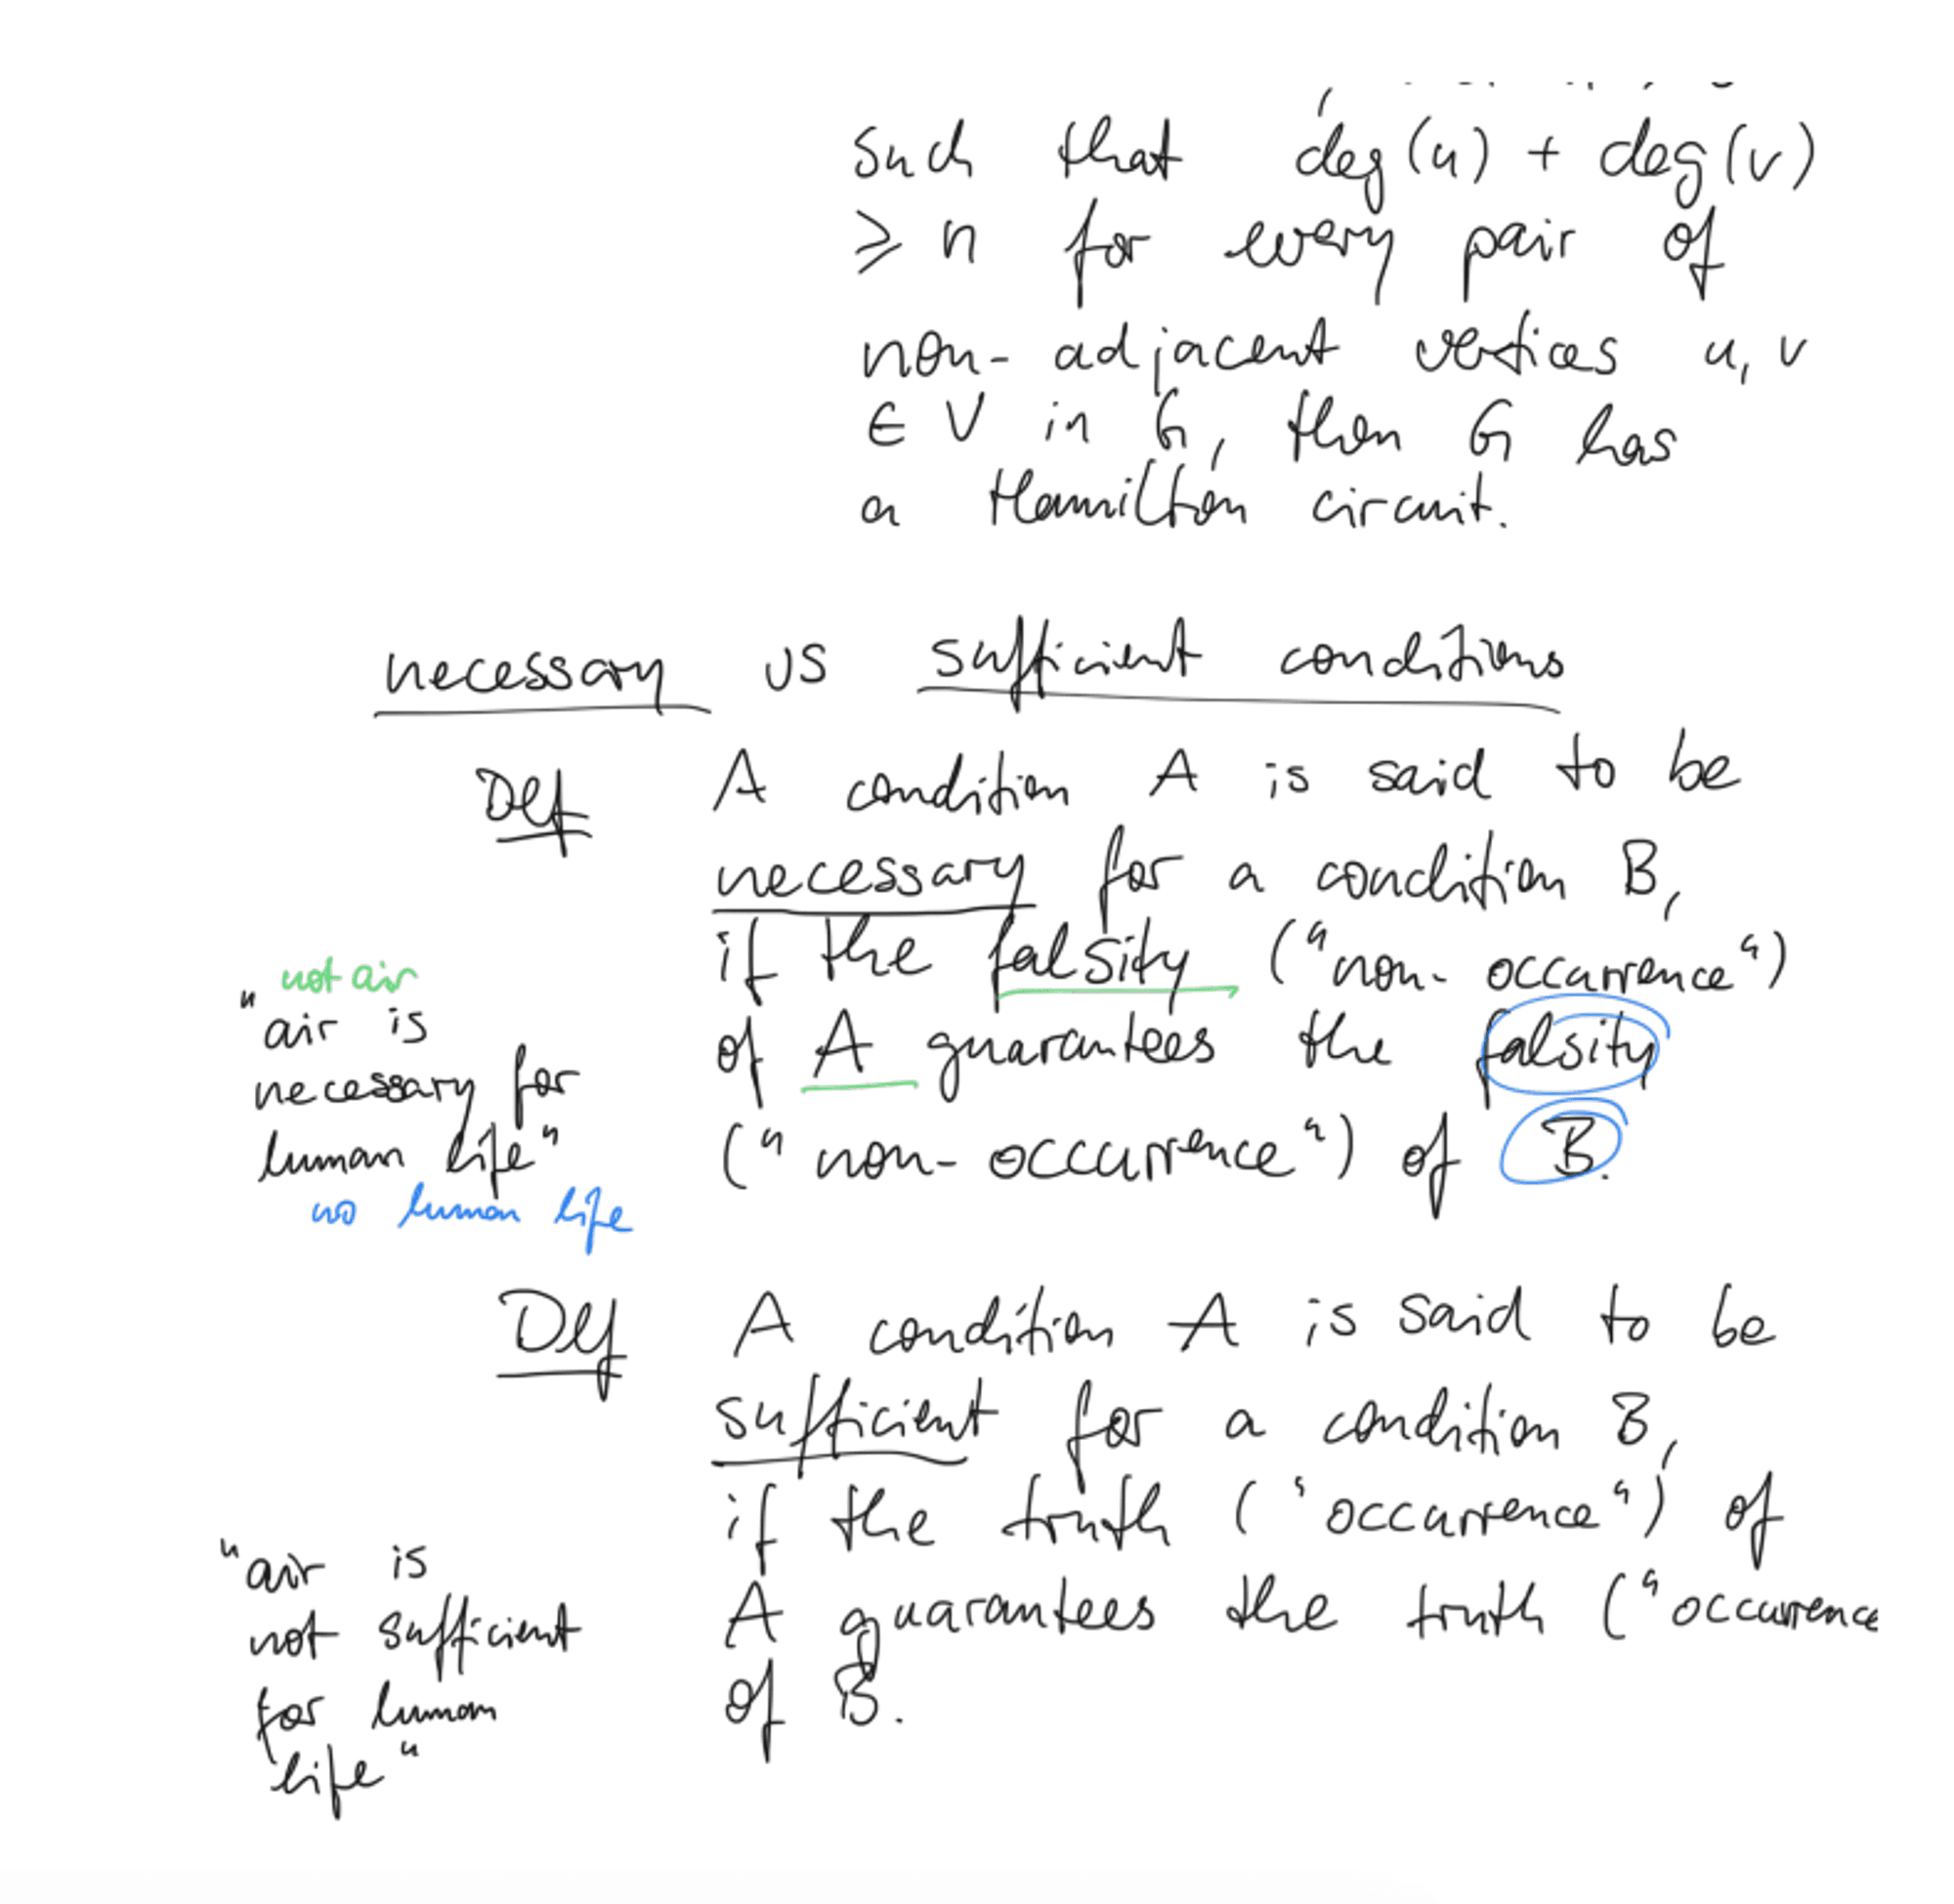 such that deg(u) + deg(v)
≥ n for every pair of
non-adjacent vertices u, v
∈ V in G, then G has
a Hamilton circuit.
necessary vs sufficient conditions
Def A condition A is said to be
necessary for a condition B,
if the falsity ("non-occurrence")
of A guarantees the falsity
("non-occurrence") of B.
not air
"air is
necessary for
human life"
no human life
Def A condition A is said to be
sufficient for a condition B,
if the truth ("occurrence") of
A guarantees the truth ("occurrence
of B.
"air is
not sufficient
for human
life"